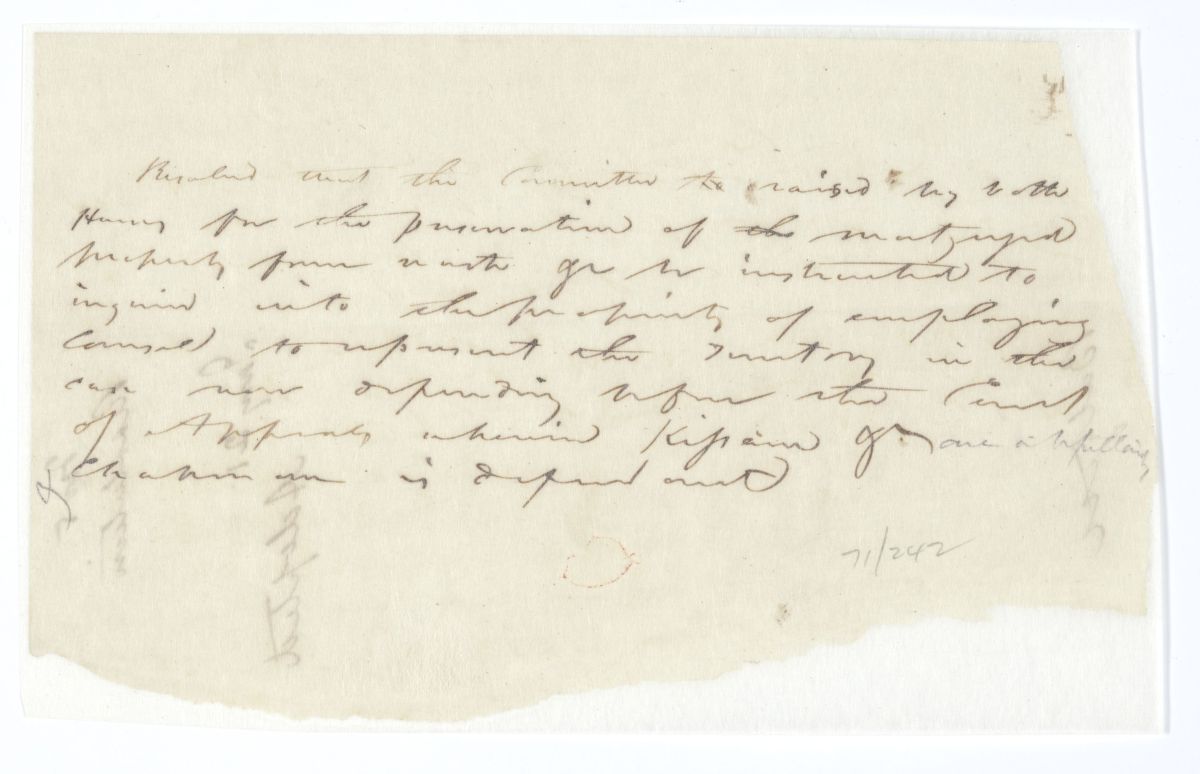 Resolved that the Committee to raised by both
Houses for the preservation of the mortgaged
property from waste &c be instructed to
inquire into the propriety of employing
Counsel to represent the Territory in the
case now depending before the Court
of Appeals wherein Kissam &c are appellants
& Chapman is defendant
71/242